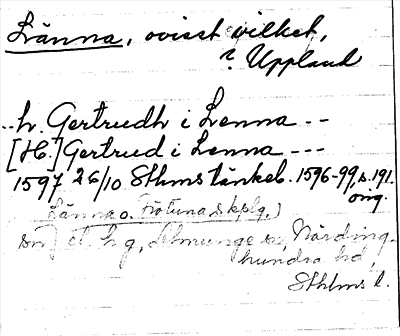 Länna, ovisst vilket,
i Uppland
--h. Gertrudh i Lenna --
[H.] Gertrud i Lenna ---
1597 26/10 Sthms tänkeb. 1596-99, s. 191.
orig.
Länna o. Frötuna skplg,)
sn) Närding-
hundra hd,
Sthlms l.